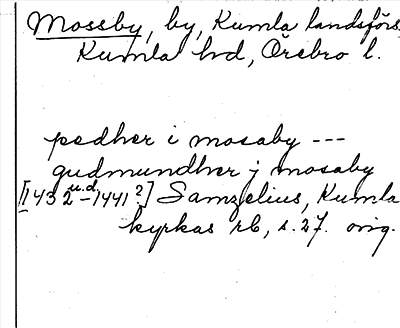 Mossby, by, Kumla landsförs.
Kumla hd, Örebro l.
pedher i mosaby ---
gudmundher j mosaby
[1432 u.d. -1441?] Samzelius, Kumla
kyrkas rb, s. 27. orig.